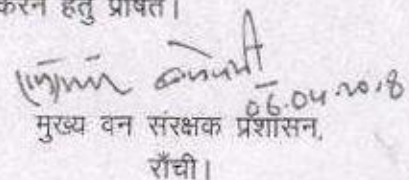 करने हेतु प्रेषित।
06.04.2018
मुख्य वन संरक्षक प्रशासन,
राँची।